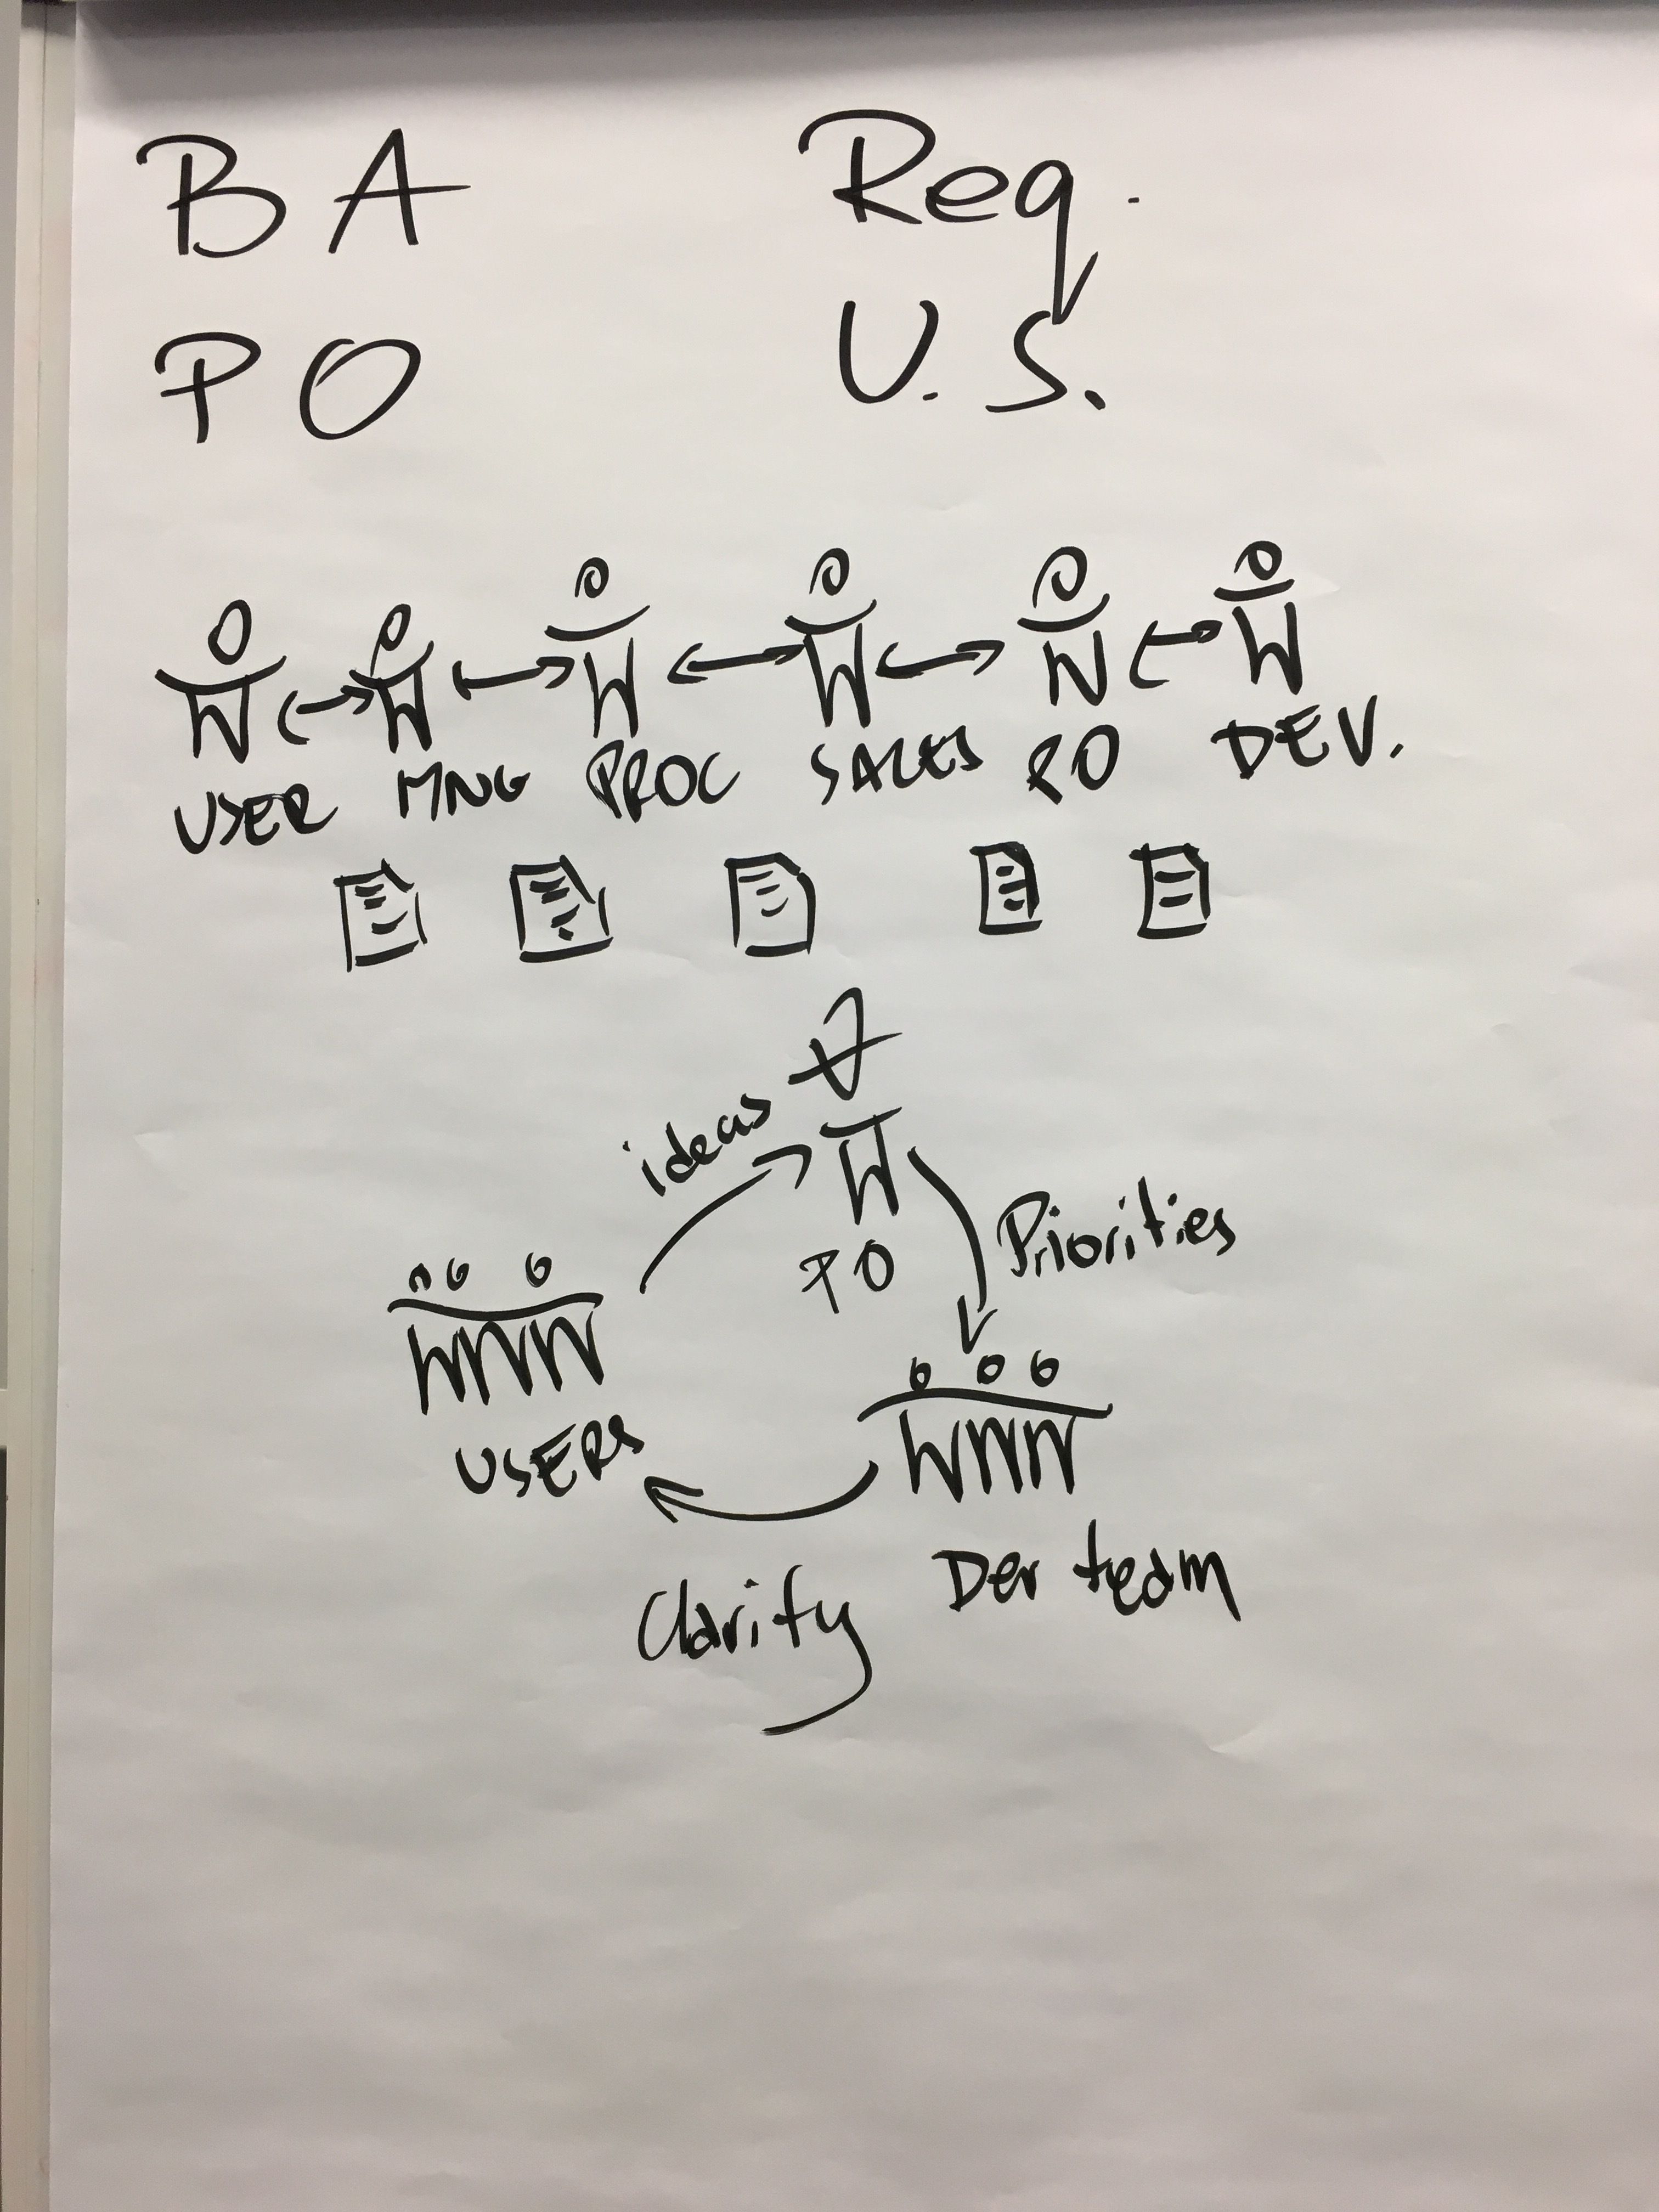 BA Req.
PO U.S.
USER MNG PROC SALES PO DEV.
ideas
PO Priorities
USERS
Dev team
Clarify